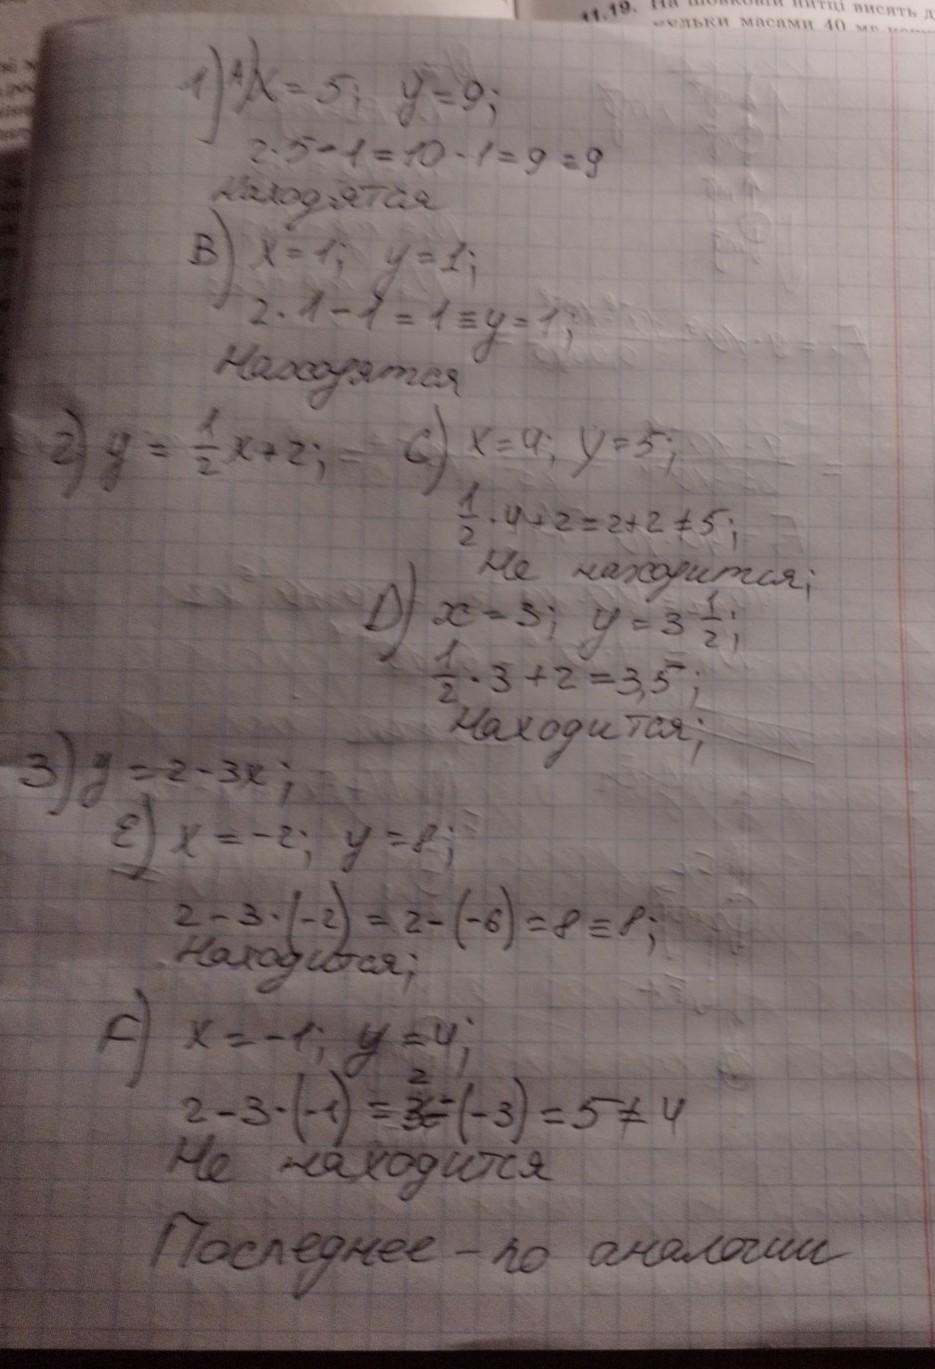 11.19. На шовковій нитці висять
масами 40 мг
1) A) x = 5; y = 9;
2·5-1 = 10-1 = 9 = 9
Находятся
B) x = 1; y = 1;
2·1-1 = 1 = y = 1;
Находятся
2) y = 1/2 x + 2; C) x = 4; y = 5;
1/2 · 4 + 2 = 2+2 ≠ 5;
Не находится;
D) x = 3; y = 3 1/2;
1/2 · 3 + 2 = 3,5;
Находится;
3) y = 2 - 3x;
E) x = -2; y = 8;
2 - 3·(-2) = 2-(-6) = 8 = 8;
Находится;
F) x = -1; y = 4;
2 - 3·(-1) = 2-(-3) = 5 ≠ 4
Не находится
Последнее - по аналогии